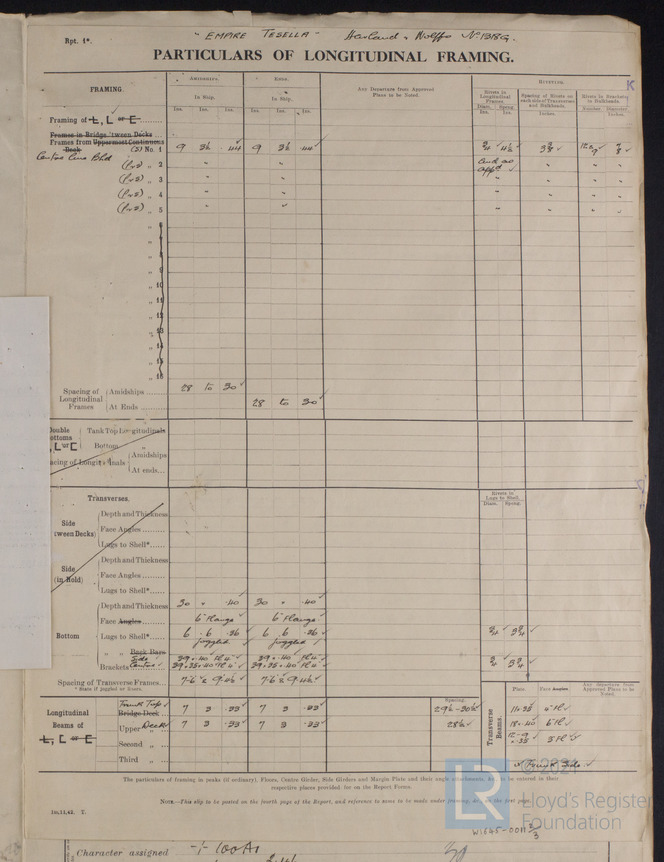 Rpt. 1*.
"EMPIRE TESELLA" Harland & Wolffs No. 1318G.
PARTICULARS OF LONGITUDINAL FRAMING.
FRAMING.
AMIDSHIPS. ENDS.
In Ship. In Ship.
Any Departure from Approved Plans to be Noted.
RIVETING.
Rivets in Longitudinal Frames
Spacing of Rivets on each side of Transverses and Bulkheads.
Rivets in Brackets to Bulkheads.
Ins. Ins. Ins. Ins. Ins. Ins.
Diam. Spcng. Ins. Ins. Inches. Number. Diameter. Inches.
K
Framing of L, [ or E
Frames in Bridge 'tween Decks
Frames from Uppermost Continuous Deck (S) No. 1 9 3½ .44 9 3½ .44
Centre Line Blhd
(P & S) „ 2 " "
and as
appd
(P & S) „ 3 " "
(P & S) „ 4 " "
(P & S) „ 5 " "
„ 6
„ 7
„ 8
„ 9
„ 10
„ 11
„ 12
„ 13
„ 14
„ 15
„ 16
Spacing of Longitudinal Frames
Amidships 28 to 30
At Ends 28 to 30
Double Bottoms
Tank Top Longitudinals
Bottom „
Spacing of Longitudinals
Amidships
At ends
Transverses.
Rivets in Lugs to Shell.
Diam. Spcng.
Side ('tween Decks)
Depth and Thickness
Face Angles
Lugs to Shell*
Side (in Hold)
Depth and Thickness
Face Angles
Lugs to Shell*
Bottom
Depth and Thickness 30 " .40 30 " .40
Face Angles 6" Flange 6" Flange
Lugs to Shell* 6 . 6 .36 6 . 6 .36 ¾ 3¾
joggled joggled
„ „ Back Bars
Side
Brackets Centre
Spacing of Transverse Frames
* State if joggled or liners.
Longitudinal Beams of L, [ or E
Trunk Top 7 3 .33 7 3 .33
Bridge Deck
Upper Deck 7 3 .33 7 3 .33 28½
Second „
Third „
Spacing.
Transverse Beams.
Plate Face Angles
Any departure from Approved Plans to be Noted.
Trunk Side
The particulars of framing in peaks (if ordinary), Floors, Centre Girder, Side Girders and Margin Plate and their angle attachments, &c., to be entered in their
respective places provided for on the Report Forms.
NOTE.—This slip to be posted on the fourth page of the Report, and reference to same to be made under framing, &c., on the first page.
1m,11,42. T.
© 2021
LR
Lloyd's Register
Foundation
W1645-0011 3/3
Character assigned + 100A1